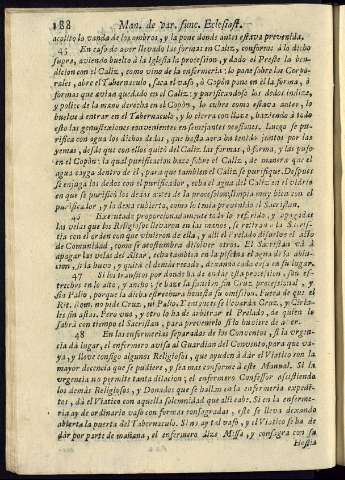 188 Man. de var. func. Eclesiast.
acolito la vanda de los ombros, y la pone donde antes estava prevenida.
45 En caso de aver llevado las formas en Caliz, conforme à lo dicho
supra, aviendo buelto à la Iglesia la procession, y dado el Preste la ben-
dicion con el Caliz, como vino de la enfermeria: lo pone sobre los Corpo-
rales, abre el Tabernaculo, saca el vaso, ò Copòn pone en èl la forma, ò
formas que avian quedado en el Caliz: y purificandose los dedos indice,
y police de la mano derecha en el Copòn, lo cubre como estava antes, lo
buelve à entrar en el Tabernaculo, y lo cierra con llave, haziendo à todo
esto las genuflexiones convenientes en semejantes ocasiones. Luego se pu-
rifica con agua los dichos dedos, que hasta aora ha tenido juntos por las
yemas, desde que con ellos quitò del Caliz las formas, ò forma, y las puso
en el Copòn: la qual purificacion haze sobre el Caliz, de manera que el
agua cayga dentro de èl, para que tambien el Caliz se purifique. Despues
se enjuga los dedos con el purificador, echa el agua del Caliz en el vidrio
en que se purificò los dedos antes de la procession, limpia muy bien con el
purificador, y la dexa cubierto, como lo tenia prevenido el Sacristan.
46 Executado proporcionadamente todo lo referido, y apagadas
las velas que los Religiosos llevaron en las manos, se retiran à la Sacris-
tia con el orden con que vinieron de ella, y alli el Prelado disuelve el acto
de Comunidad, como se acostumbra disolver otros. El Sacristan và à
apagar las velas del Altar, echa tambien en la piscina el agua de la ablu-
cion, si la huvo, y quita el demàs recado, dexando cada cosa en su lugar.
47 Si los transitos por donde ha de andar esta procession, son es-
trechos en lo alto, y anchos; se haze la funcion sin Cruz processional, y
sin Palio, porque la dicha estrechura honesta su omission. Fuera de que el
Rit. Rom. no pide Cruz, ni Palio. Y entonces se llevaràn Cruz, y Ciria-
les sin altas. Pero vno, y otro lo ha de arbitrar el Prelado, de quien lo
sabrà con tiempo el Sacristan, para prevenirlo si huviere de aver.
48 En las enfermerias separadas de los Conventos, si la vrgen-
cia dà lugar, el enfermero avisa al Guardian del Convento, para que va-
ya, y lleve consigo algunos Religiosos, que ayuden à dàr el Viatico con la
mayor decencia que se pudiere, y sea mas conforme à este Manual. Si la
vrgencia no permite tanta dilacion; el enfermero Confessor assistiendo
los demàs Religiosos, y Donados que se hallan en la enfermeria expedi-
tos, dà el Viatico con aquella solemnidad que alli cabe. Si en la enferme-
ria ay de ordinario vaso con formas consagradas, este se lleva dexando
abierta la puerta del Tabernaculo. Si no ay tal vaso, y el Viatico se ha de
dàr por parte de mañana, el enfermero dize Missa, y consagra con su
Hostia